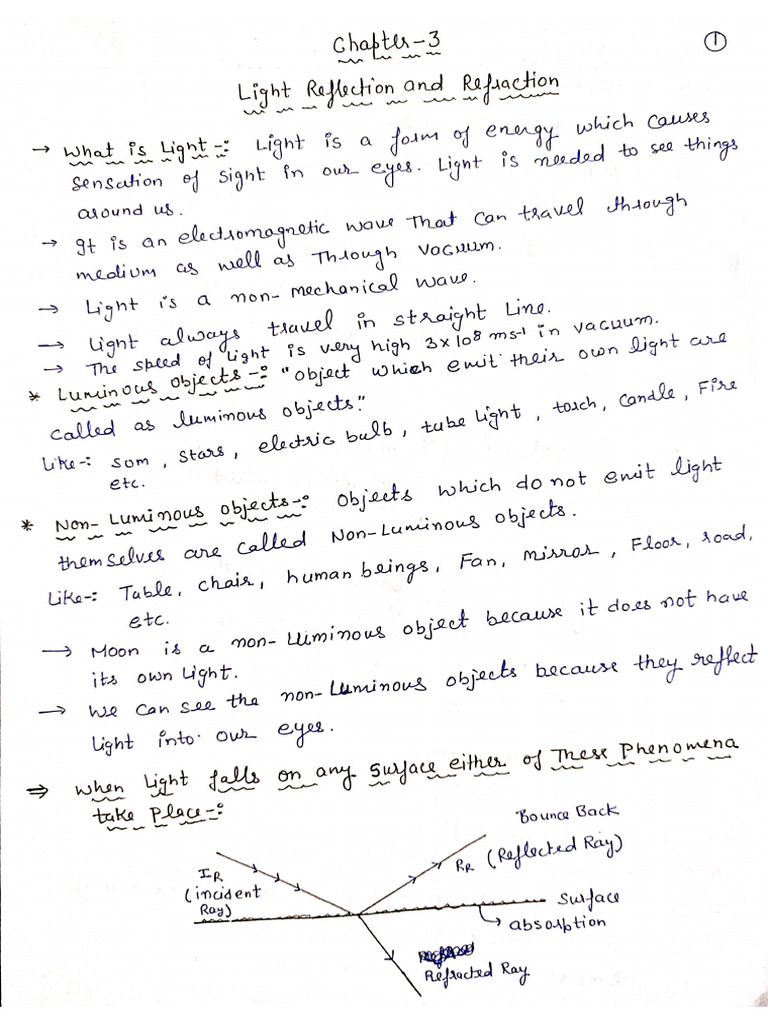 Chapter-3
①
Light Reflection and Refraction
→ What is Light-: Light is a form of energy which causes
sensation of sight in our eyes. Light is needed to see things
around us.
→ It is an electromagnetic wave That can travel through
medium as well as Through vacuum.
→ Light is a non-mechanical wave.
→ Light always travel in straight Line.
→ The speed of Light is very high 3×10⁸ ms⁻¹ in vacuum.
* Luminous objects-: "object which emit their own light are
called as luminous objects."
Like-: som, stars, electric bulb, tube light, torch, Candle, Fire
etc.
* Non-Luminous objects-: objects which do not emit light
themselves are called Non-Luminous objects.
Like-: Table, chair, human beings, Fan, mirror, Floor, road,
etc.
→ Moon is a non-luminous object because it does not have
its own Light.
→ We can see the non-Luminous objects because they reflect
light into our eyes.
⇒ When Light falls on any surface either of These Phenomena
take Place-:
Bounce Back
IR
(incident
Ray)
RR (Reflected Ray)
Surface
absorption
Refracted Ray